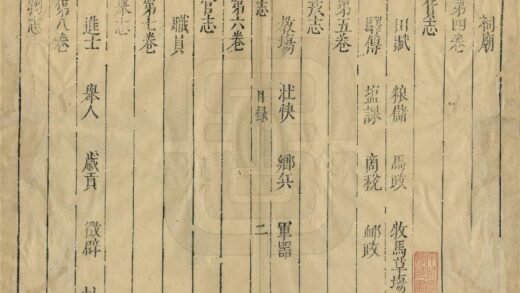 祠廟
第四卷
貨志
田賦 粮儲 馬政 牧馬草塲
驛傳 塩課 商稅 郵政
第五卷
戎志
教塲 壯快 鄉兵 軍器
目録 二
志
第六卷
官志
職員
第七卷
舉志
進士 舉人 歲貢 徵辟
第八卷
志